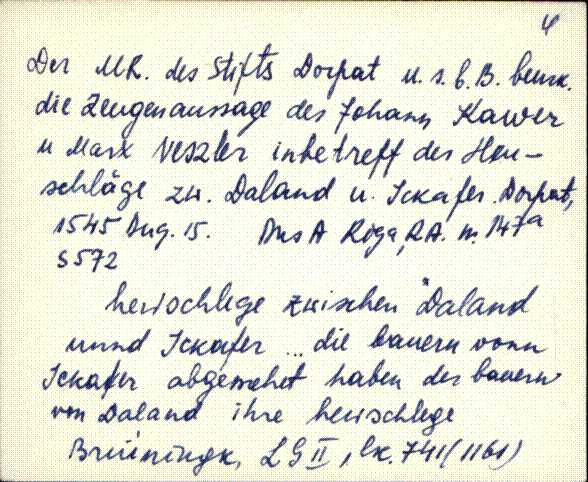 4
Der MR. des Stifts Dorpat u. s. b. B. beurk.
die Zeugenaussage des Johann Kawer
u Marx Neszler inbetreff der Heu-
schläge zw. Daland u. Ickafer. Dorpat,
1545 Aug. 15. Aus A Riga, RA. m. 147a
S 572
heuschlege zwischen Daland
unnd Ickafer ... die bauern vonn
Ickafer abgemehet haben der bauern
von Daland ihre heuschlege
Bruiningk, LG II, lk. 741 (1161)